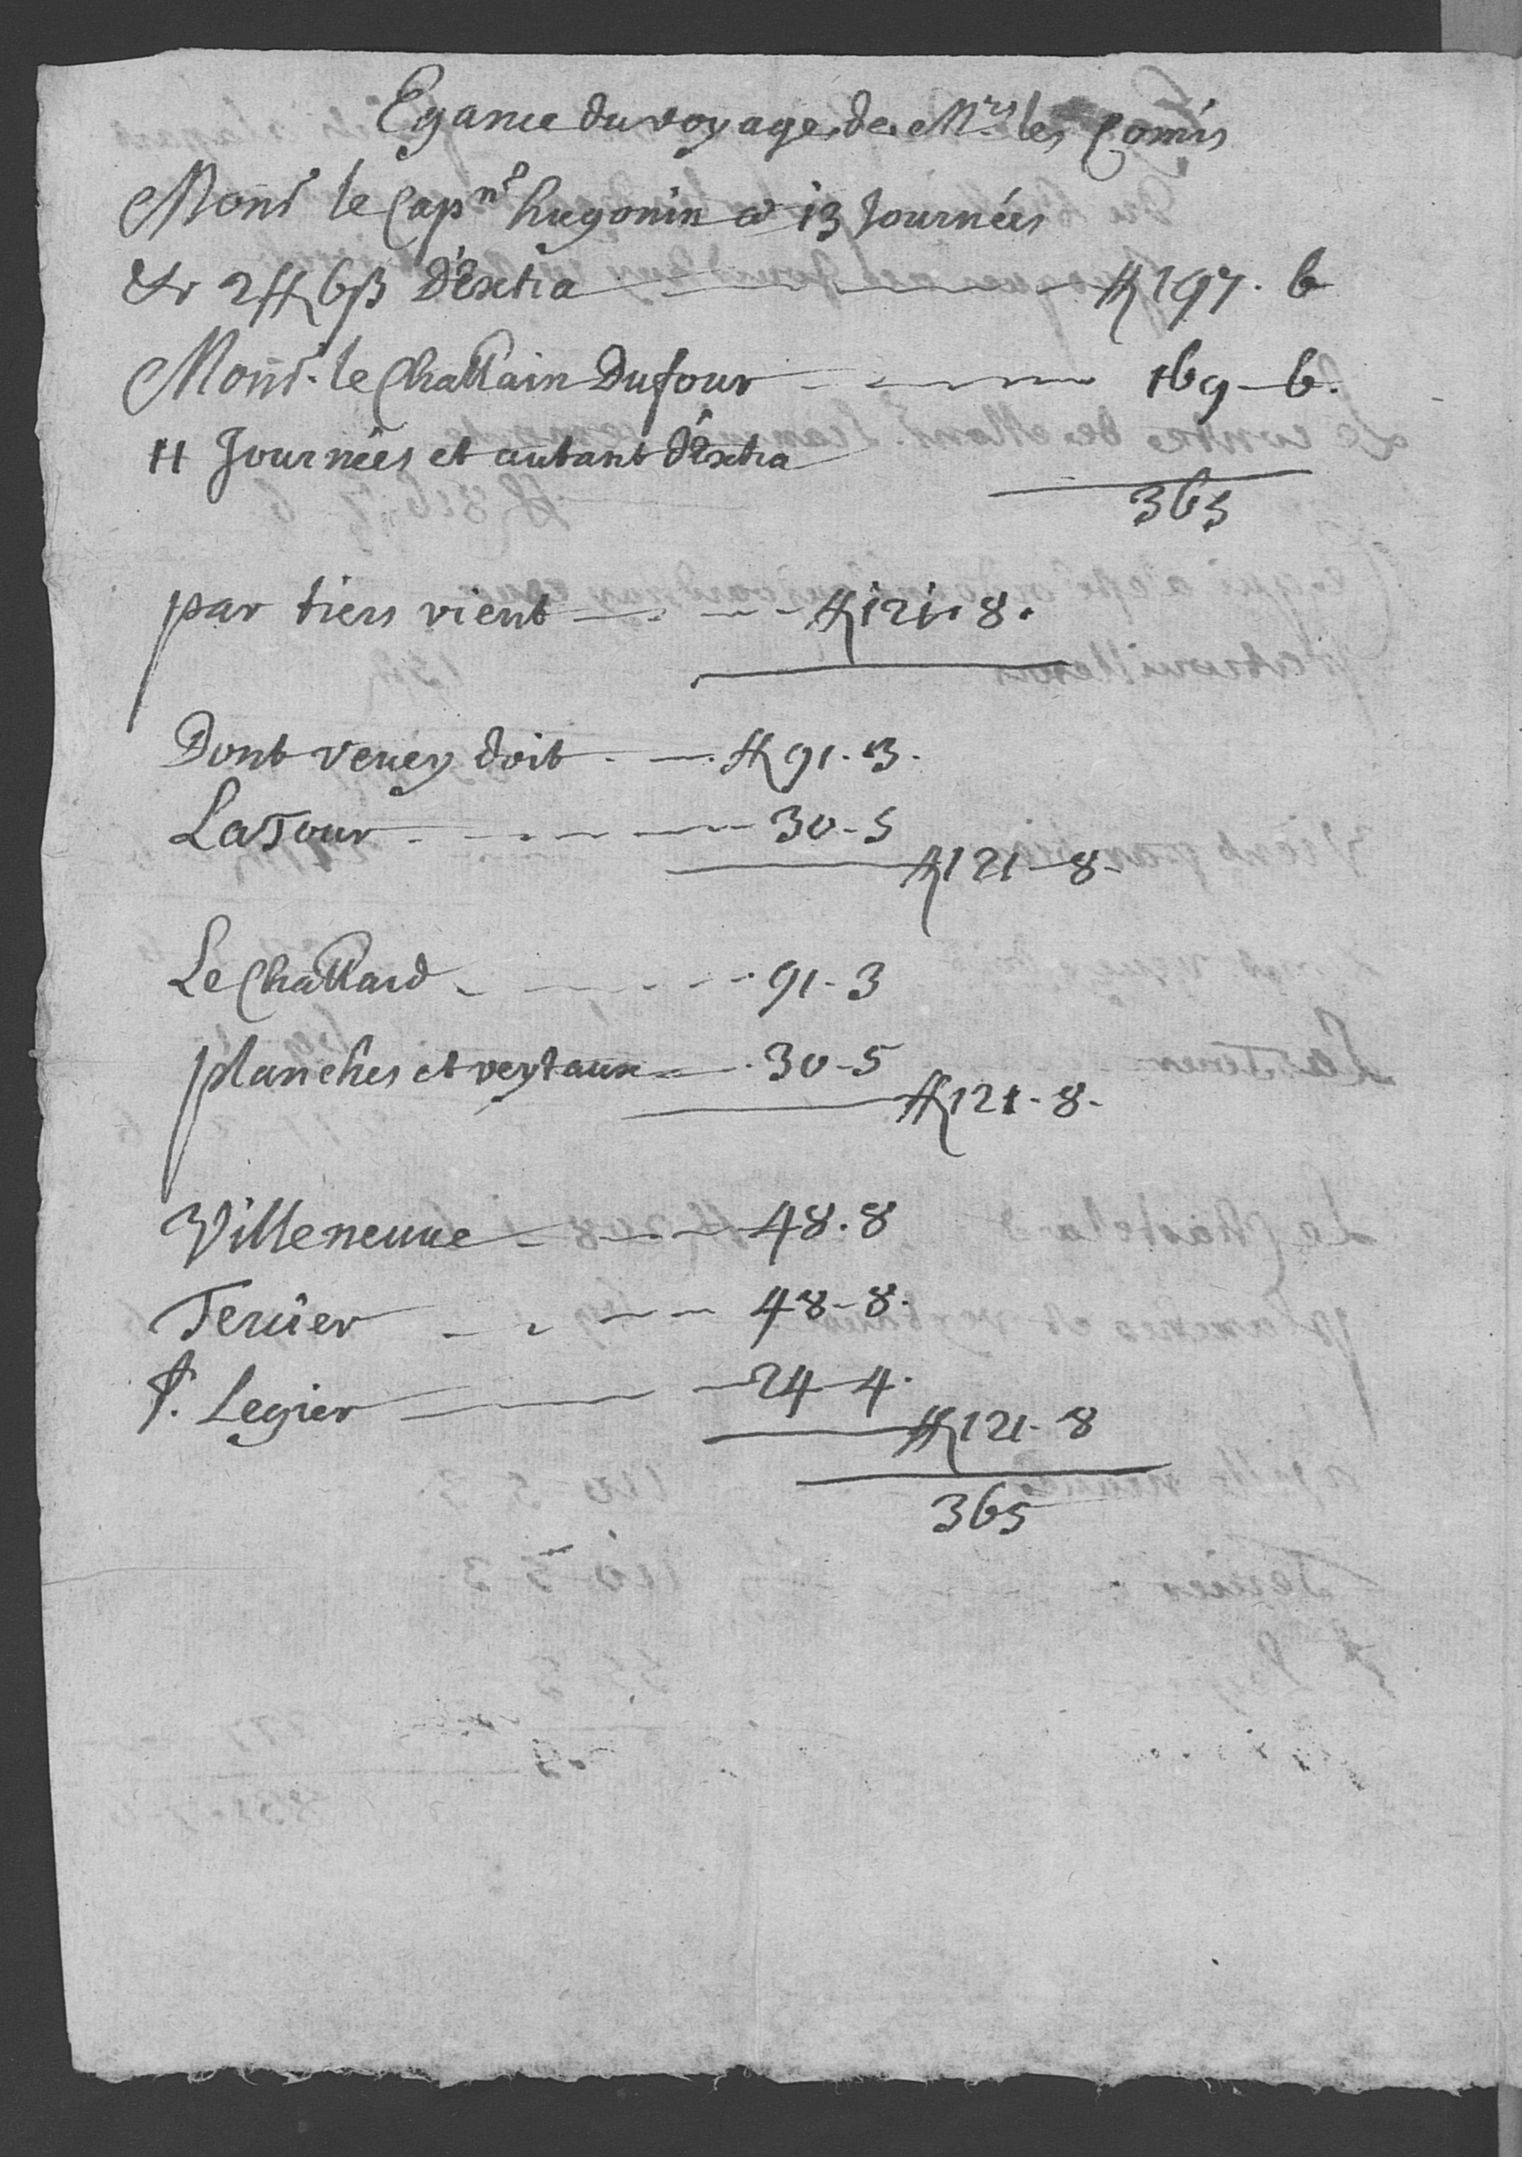 Egance du voyage de Mrs les Comis
Monsr le Capne hugonin a 13 Journées
& 2 ff 6 ß D'Extra ff 197. 6
Monsr. le Chattlain Dufour 169 - 6.
11 Journées et autant d'Extra
365
par tiers vient ff 121. 8.
Dont vevey doit ff 91. 3.
La Tour 30 - 5
ff 121 - 8 -
Le Chattlard 91 - 3
planches et veytaux 30 - 5
ff 121 - 8 -
Villeneuve 48. 8
Tercier 48 - 8.
St. Legier 24 - 4.
ff 121 - 8
365